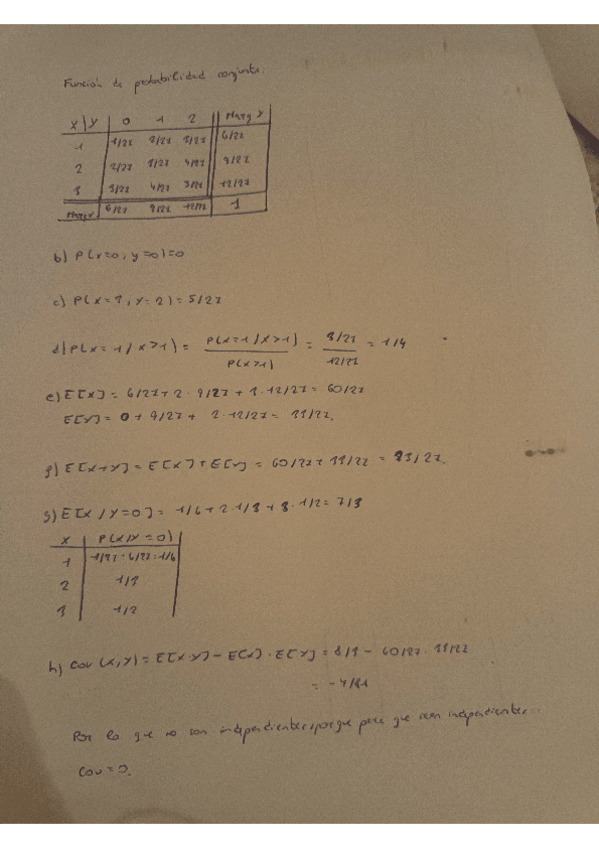 Función de probabilidad conjunta.
X|Y 0 1 2 Marg X
1 1/27 2/27 3/27 6/27
2 2/27 3/27 4/27 9/27
3 3/27 4/27 5/27 12/27
Marg Y 6/27 9/27 12/27 1
b) P(x=0, y=0)=0
c) P(X=3, Y=2) = 5/27
d) P(X=1 / X>1) = P(X=1 / X>1) / P(X>1) = 3/27 / 12/27 = 1/4
e) E[X] = 6/27 + 2 · 9/27 + 3 · 12/27 = 60/27
E[Y] = 0 + 9/27 + 2 · 12/27 = 33/27.
f) E[X+Y] = E[X] + E[Y] = 60/27 + 33/27 = 93/27.
g) E[X / Y=0] = 1/6 + 2 · 1/3 + 3 · 1/2 = 7/3
X P(X/Y = 0)
1 1/27 ÷ 6/27 = 1/6
2 1/3
3 1/2
h) Cov (X,Y) = E[X·Y] - E[X] · E[Y] = 8/3 - 60/27 · 33/27
= -4/81
Por lo que no son independientes, porque para que sean independientes
Cov = 0.